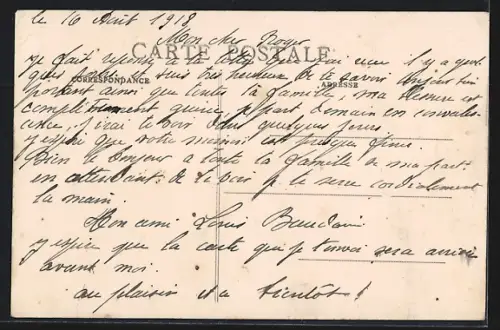 le 16 Août 1918
Mon cher Roger
CARTE POSTALE
je fait reponse à ta lettre que j'ai recu il y a quel
CORRESPONDANCE
ADRESSE
ques jours suis très heureux de te savoir toujours bien
portant ainsi que toute ta famille, ma blessure est
complètement guérie je part demain en convales
cence, j'irai te voir dans quelques jours
j'espère que votre moisson est presque finie.
Bien le bonjour a toute ta famille de ma part
en attendant de te voir je te serre cordialement
la main.
Mon ami Louis
j'espère que la carte que je t'envoi sera arrivée
avant moi.
au plaisir et a bientôt !